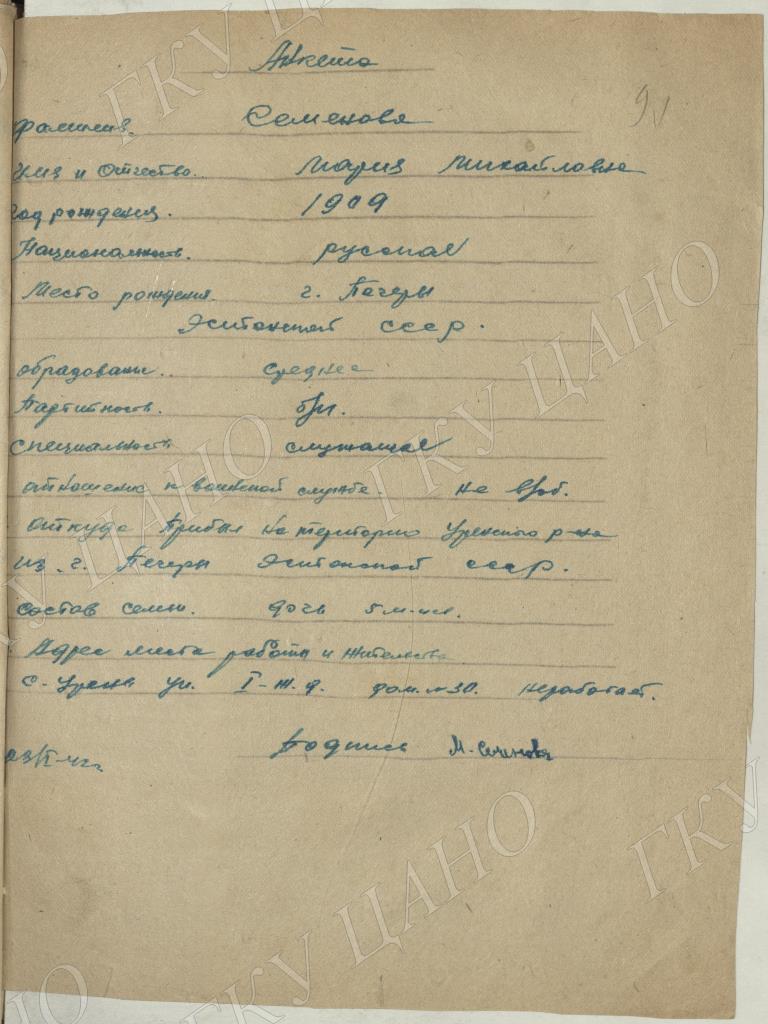 Анкета
фамилия. Семенова
имя и Отчество. Мария Михайловна
год рождения. 1909
Национальность. русская
Место рождения. г. Печеры
Эстонской ссср.
образовани.. среднее
Партийность. б/п.
специальность служащая
отношение к воинской службе. не в/об.
откуда Прибыл на територию Уренского р-на
из г. Печеры Эстонской ссср.
состав семьи. дочь 5 м-
Адрес места работы и жительства
с. Урень ул. I-ж. д. дом. № 30. неработает.
Подпись М. Семенова
ГКУ ЦАНО